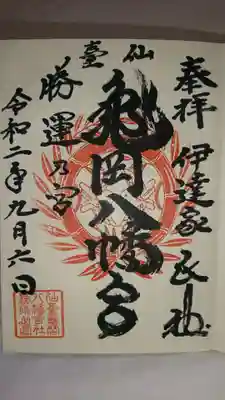 奉拝
伊達家氏神
仙臺
亀岡八幡宮
勝運乃宮
令和二年九月六日